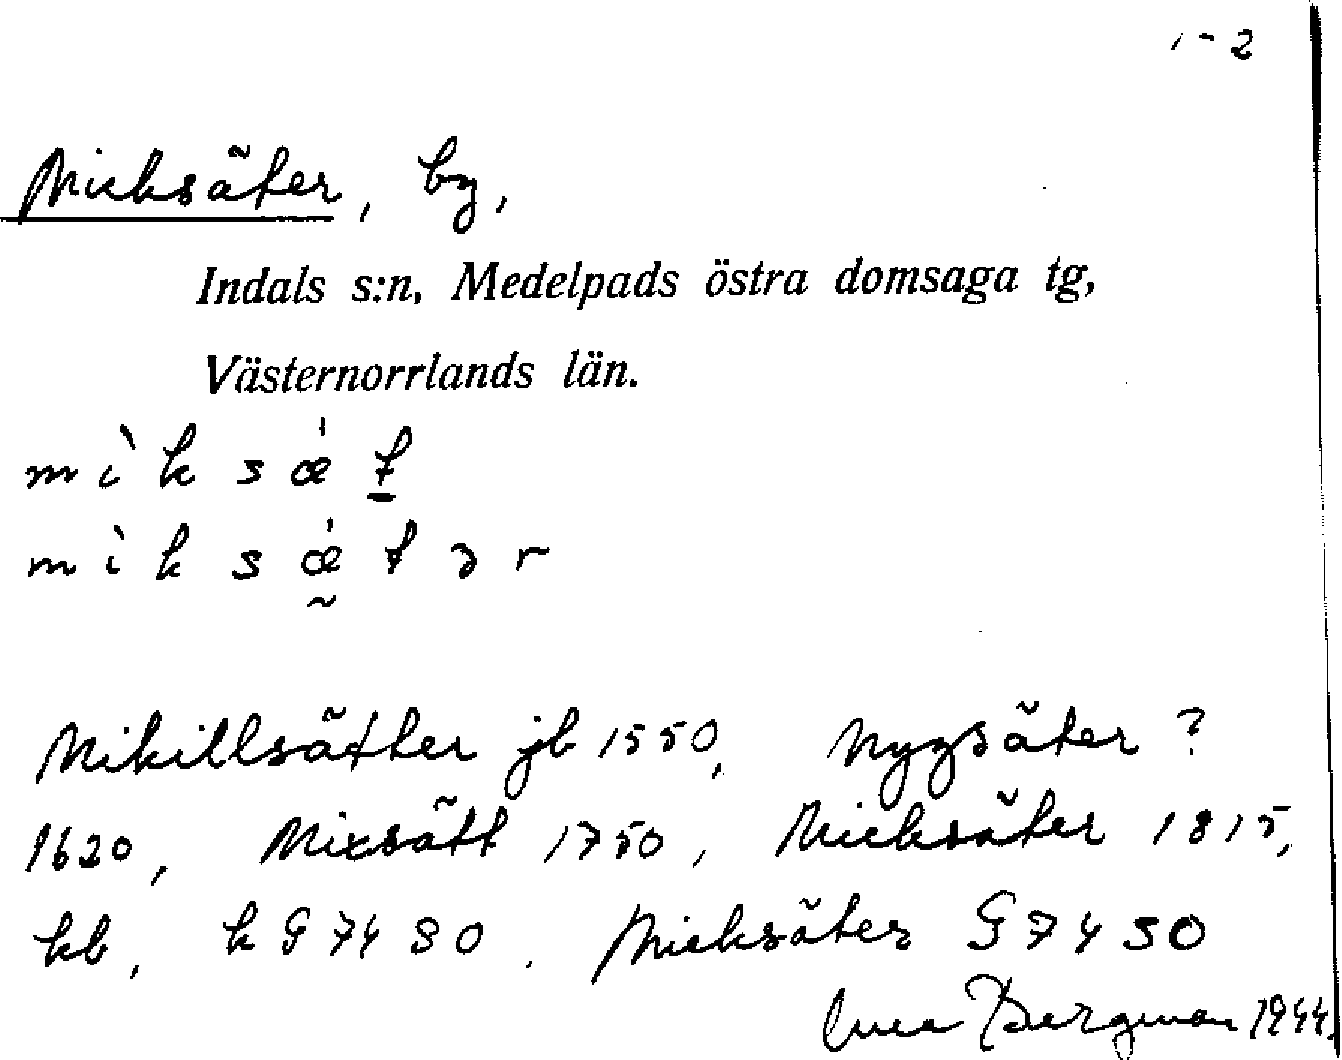 1-2
Micksäter, by,
Indals s:n, Medelpads östra domsaga tg,
Västernorrlands län.
mìksǽt̲
mìksǽ̰tər
Mikillsätter jb 1550, Nygsäter?
1620, Mixsätt 1750, Micksäter 1815,
kb, k G 7480. Micksäter G 7450
Bergman 1944.